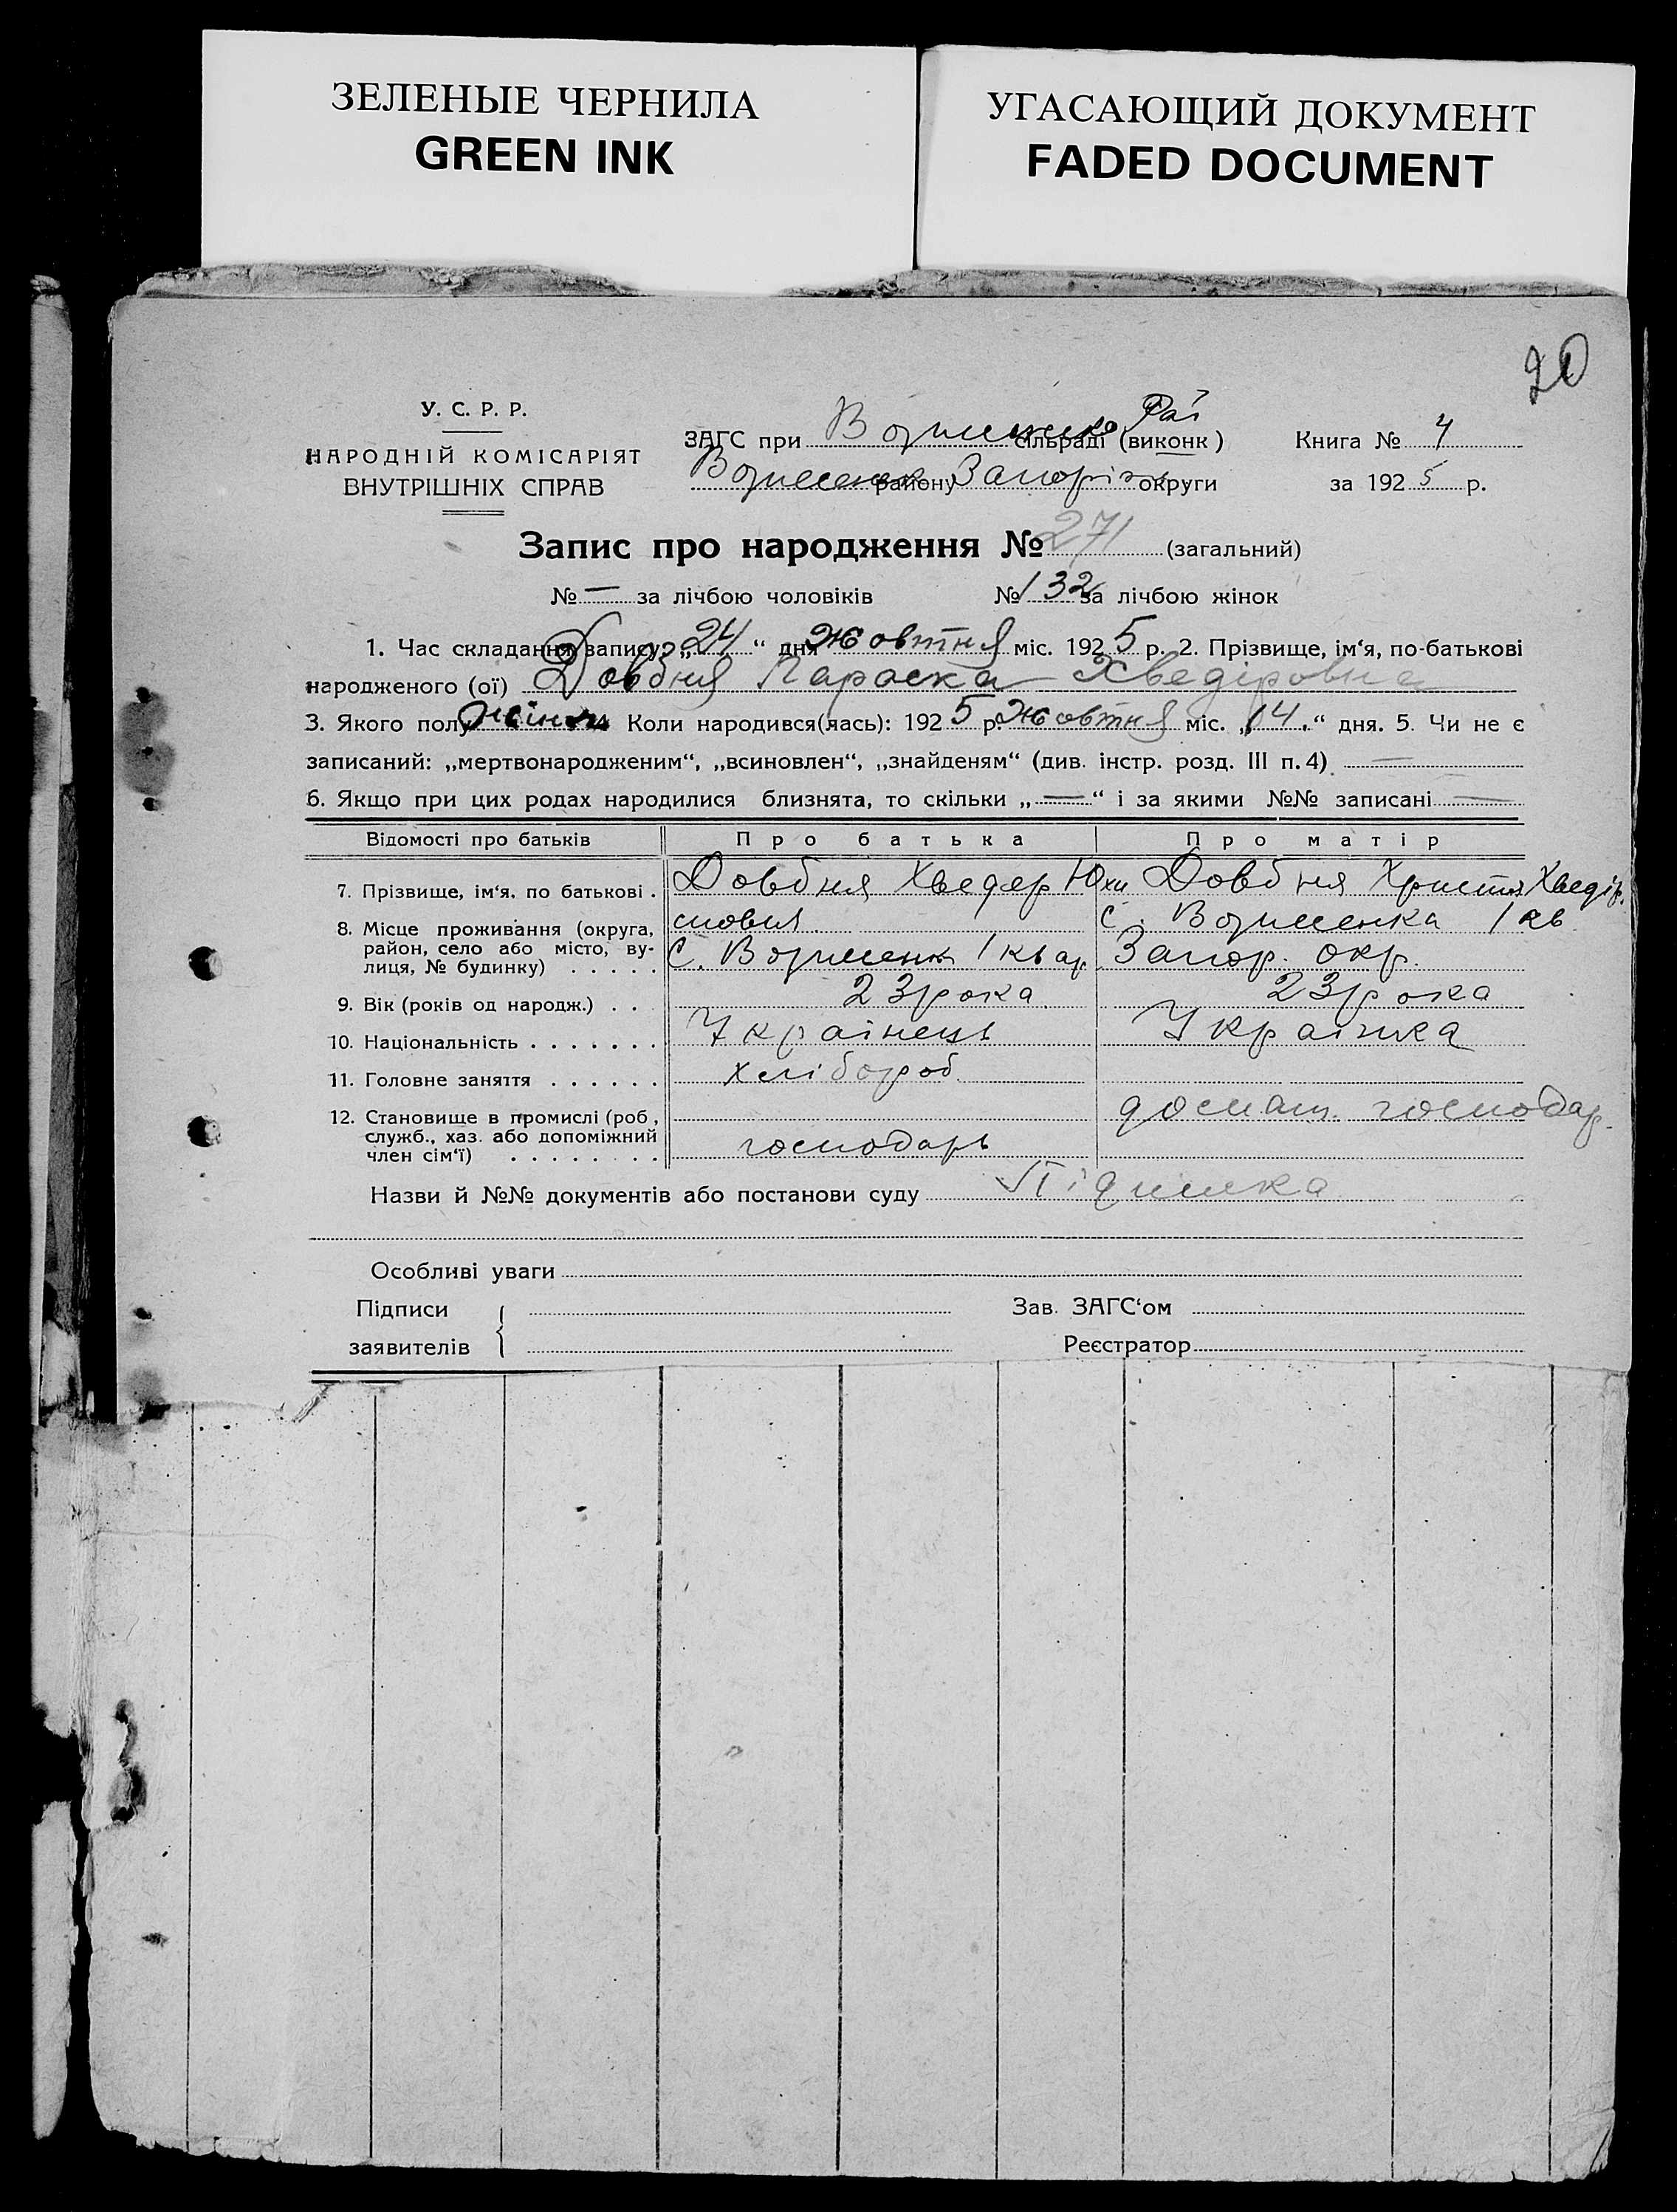 ЗЕЛЕНЫЕ ЧЕРНИЛА
GREEN INK
УГАСАЮЩИЙ ДОКУМЕНТ
FADED DOCUMENT
20
У. С. Р. Р.
НАРОДНІЙ КОМІСАРІЯТ
ВНУТРІШНІХ СПРАВ
Рай
ЗАГС при Вознесенко сільраді (виконк) Книга № 4
Вознесенк району Запоріж округи за 1925 р.
Запис про народження № 271 (загальний)
№ — за лічбою чоловіків № 132 за лічбою жінок
1. Час складання запису: „24“ дня жовтня міс. 1925 р. 2. Прізвище, ім‘я, по-батькові
народженого (ої) Довбня Параска Хведіровна
3. Якого полу жіноч 4 Коли народився(лась): 1925 р. жовтня міс. „14.“ дня. 5. Чи не є
записаний: „мертвонародженим“, „всиновлен“, „знайденям“ (див. інстр. розд. III п. 4) —
6. Якщо при цих родах народилися близнята, то скільки „—“ і за якими №№ записані —
Відомості про батьків Про батька Про матір
7. Прізвище, ім‘я, по батькові . Довбня Хведер Юхи Довбня Христя Хведір.
8. Місце проживання (округа, мович с. Вознесенка 1 кв
район, село або місто, ву-
лиця, № будинку) . . . . . с. Вознесенк 1 квар. Запор. окр.
9. Вік (років од народж.) . . . 23 рока 23 рока
10. Національність . . . . . . . Українець Українка
11. Головне заняття . . . . . . хлібороб.
12. Становище в промислі (роб, домаш. господар.
служб., хаз. або допоміжний
член сім‘ї) . . . . . . . . господарь
Назви й №№ документів або постанови суду Підписка
Особливі уваги
Підписи Зав. ЗАГС‘ом
заявителів Реєстратор